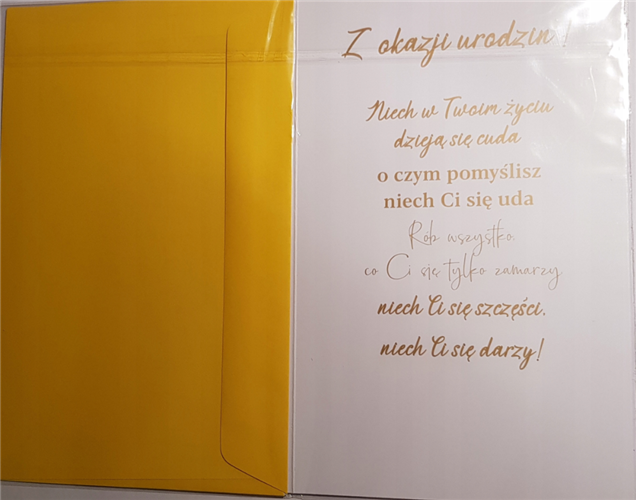 Z okazji urodzin!
Niech w Twoim życiu
dzieją się cuda
o czym pomyślisz
niech Ci się uda
Rób wszystko,
co Ci się tylko zamarzy
niech Ci się szczęści,
niech Ci się darzy!